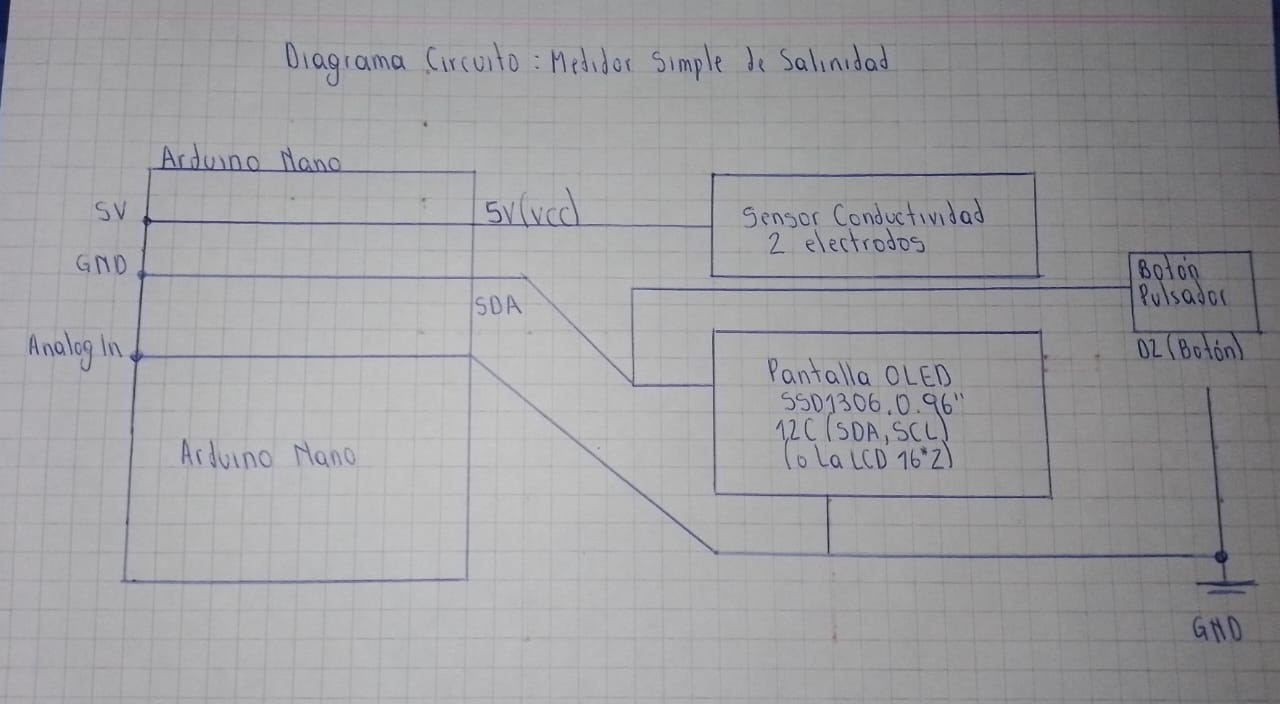 Diagrama Circuito: Medidor Simple de Salinidad
Arduino Nano
5V
5V(VCC)
GND
SDA
Analog In
Arduino Nano
Sensor Conductividad
2 electrodos
Botón
Pulsador
D2 (Botón)
Pantalla OLED
SSD1306. 0.96"
I2C (SDA, SCL)
(o La LCD 16*2)
GND